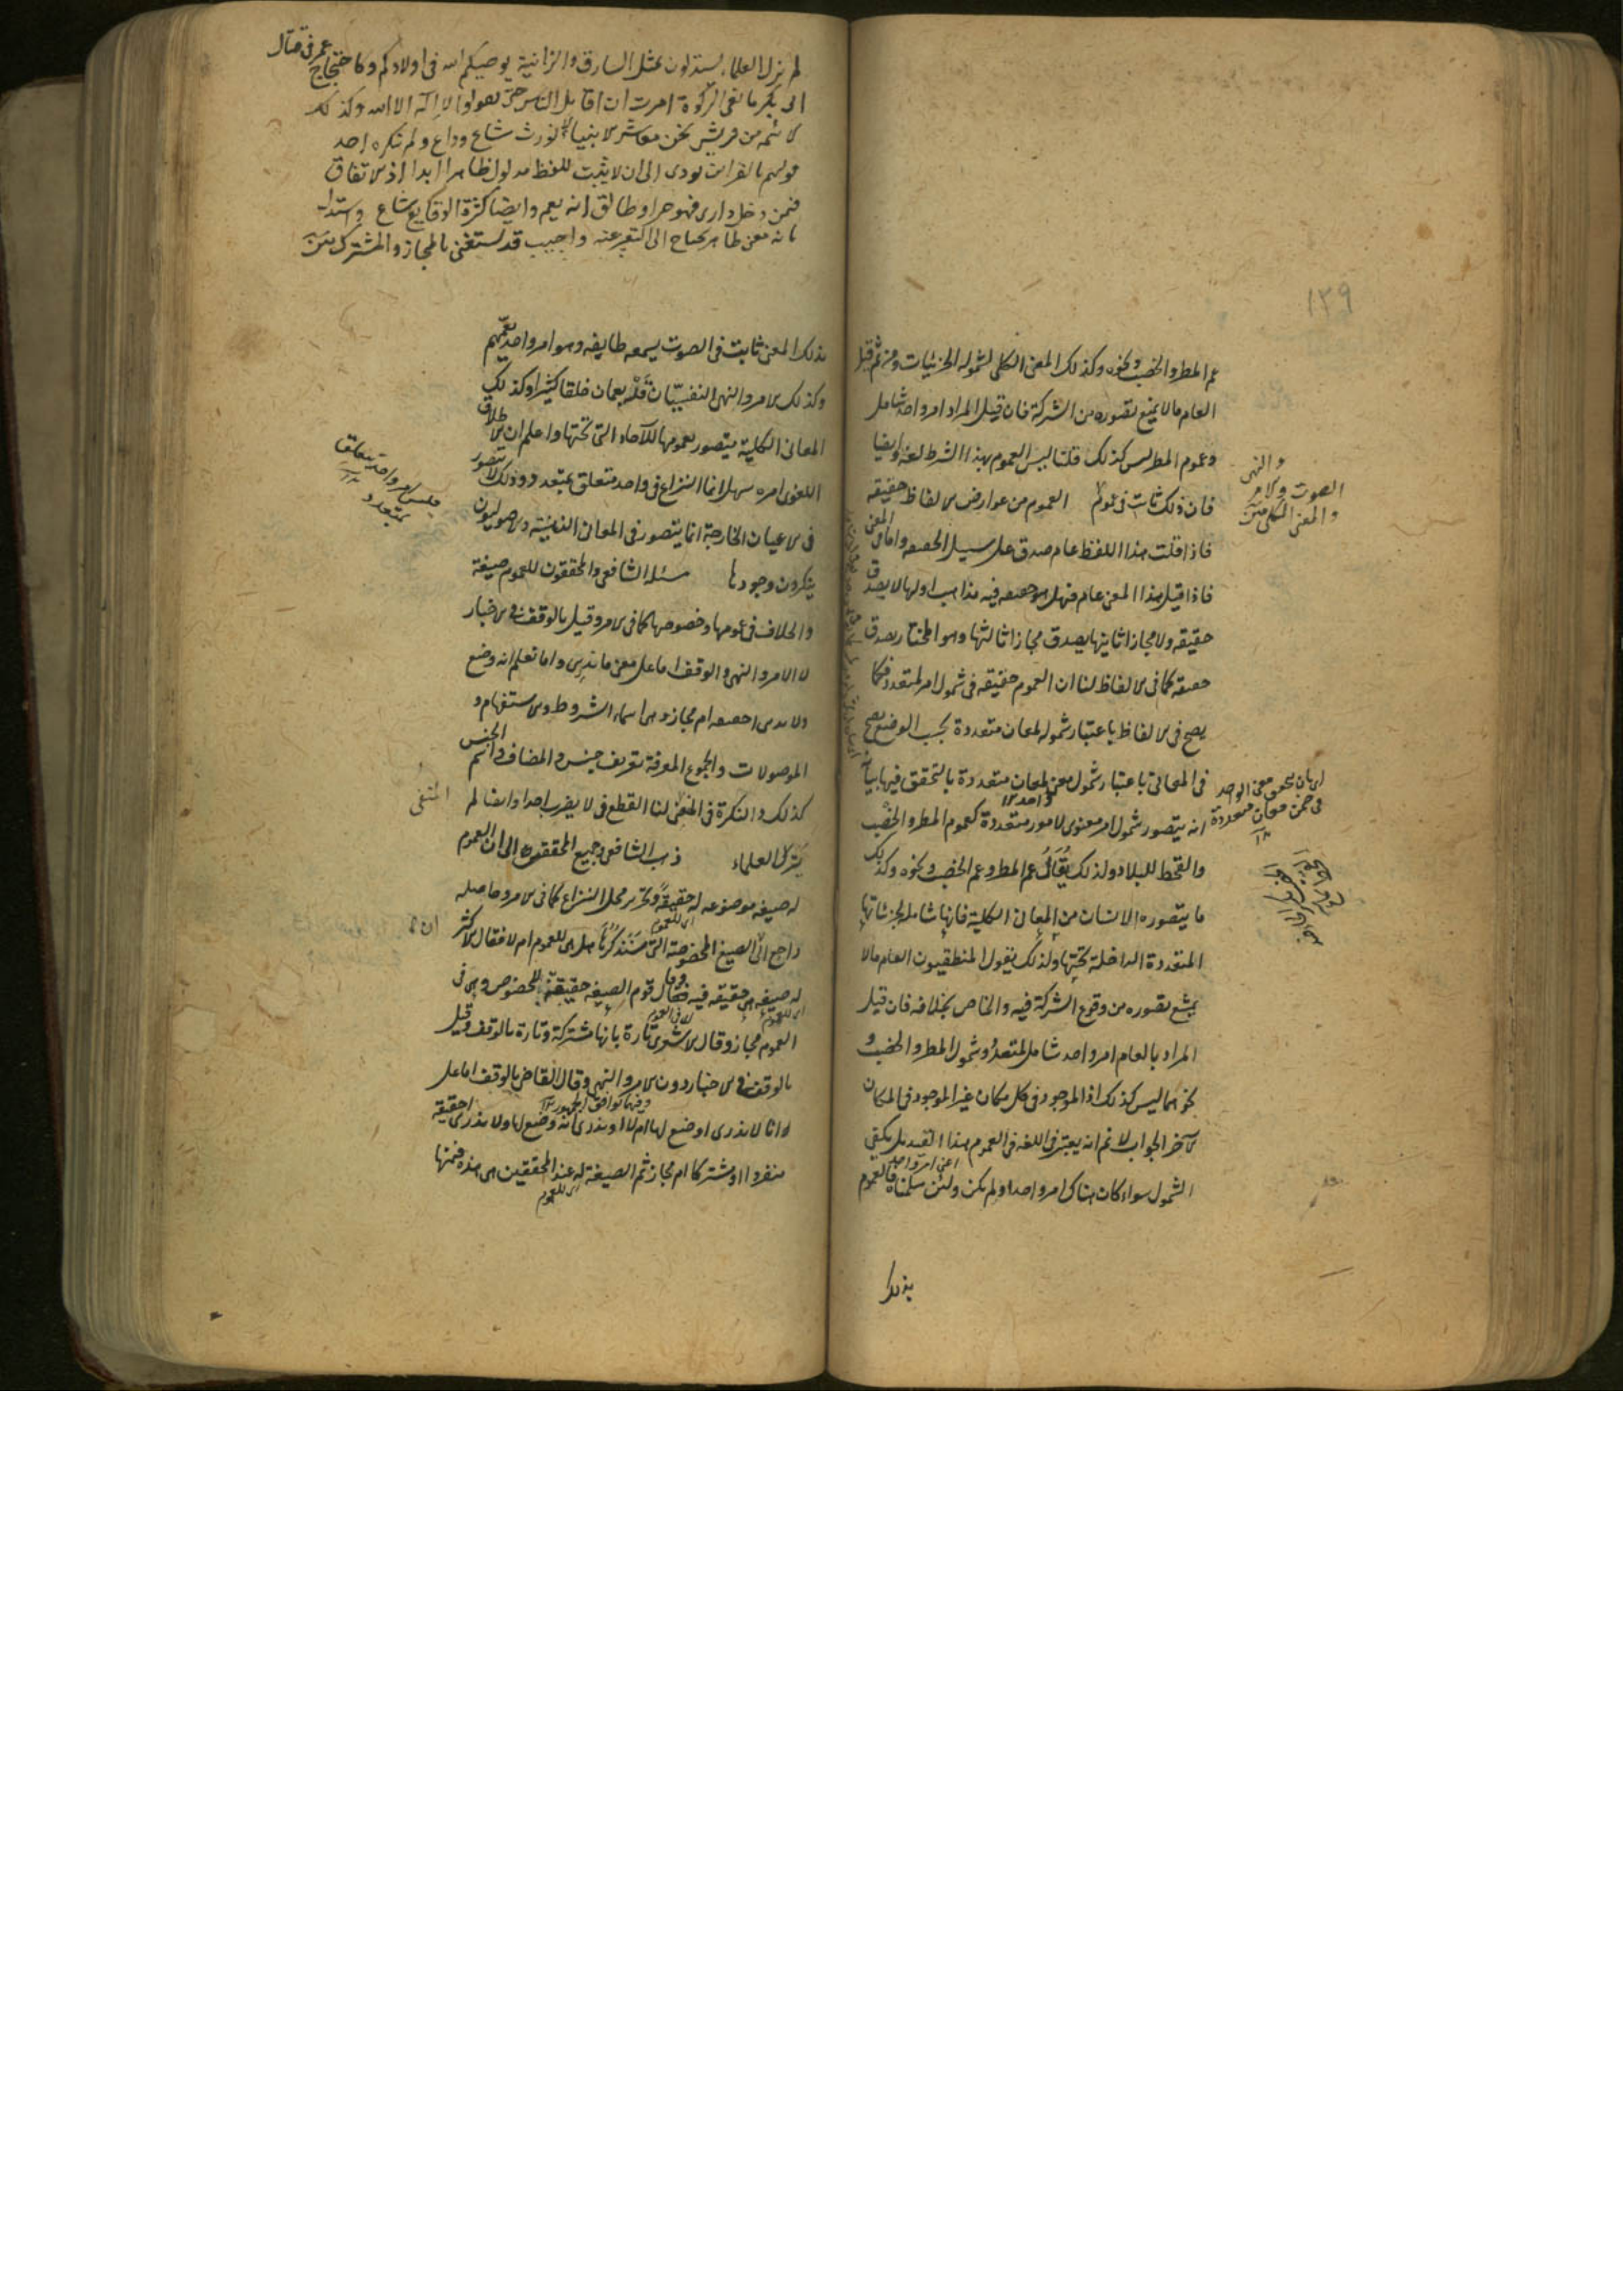 ١٣٩
عم المطر والخصب ونحوه وكذلك المعنى الكلي لشموله الجزئيات ومن ثم قيل
العام ما لا يمنع تصوره من الشركة فان قيل المراد امر واحد شامل
وعموم المطر ليس كذلك قلنا ليس العموم بهذا الشرط لغة وايضا
والنهى
الصوت والامر
والمعنى الكلى
فان ذلك ثابت في عموم العموم من عوارض الالفاظ حقيقة
فاذا قلت هذا اللفظ عام صدق على سبيل الحقيقة واما في المعنى
فاذا قيل هذا المعنى عام فهل هو حقيقة فيه مذاهب اولها لا يصدق
حقيقة ولا مجازا ثانيها يصدق مجازا ثالثها وهو المختار يصدق
حقيقة كما في الالفاظ لنا ان العموم حقيقة في شمول امر لمتعدد فكما
يصح في الالفاظ باعتبار شموله لمعان متعددة بحسب الوضع يصح
في المعاني باعتبار شمول معنى لمعان متعددة بالتحقق فيها بيانه
اى بان يتحقق معنى الواحد
في ضمن معان متعددة
انه يتصور شمول امر معنوى لامور متعددة كعموم المطر والخصب
والقحط للبلاد ولذلك يُقَالُ عم المطر وعم الخصب ونحوه وكذلك
ما يتصوره الانسان من المعاني الكلية فانها شاملة لجزئياتها
المتعددة الداخلة تحتها ولذلك يقول المنطقيون العام ما لا
يمنع تصوره من وقوع الشركة فيه والخاص بخلافه فان قيل
المراد بالعام امر واحد شامل لمتعدد وشمول المطر والخصب و
نحوهما ليس كذلك اذ الموجود في كل مكان غير الموجود في المكان
الآخر الجواب لا نم انه يعتبر في اللغة في العموم هذا القيد بل يكفى
اعنى امر واحد
الشمول سواء كان هناك امر واحد او لم يكن ولئن سلمناه فالعموم
بذلك
لم يزل العلماء يستدلون بمثل السارق والزانية يوصيكم الله في اولادكم وكاحتجاج عمر في قتال
ابى بكر مانعى الزكوة امرت ان اقاتل الناس حتى يقولوا لا اله الا الله وكذلك
الائمة من قريش نحن معاشر الانبياء لا نورث شاع وذاع ولم ينكره احد
قولهم بالقرائن يودى الى ان لا يثبت للفظ مدلول ظاهر ابدا اذ الاتفاق
فيمن دخل دارى فهو حر او طالق انه يعم وايضا كثرة الوقايع شاع واستدل
بانه معنى ظاهر يحتاج الى التعبير عنه واجيب قد يستغنى بالمجاز والمشترك
بذلك المعنى ثابت في الصوت يسمعه طايفة وهو امر واحد يعمهم
وكذلك الامر والنهى النفسيان فانه يعمان خلقا كثيرا وكذلك
المعاني الكلية يتصور عمومها للآحاد التي تحتها واعلم ان الاطلاق
اللغوى امره سهل انما النزاع في واحد متعلق بمتعدد وذلك لا يتصور
فليس امر واحد يتعلق
بمتعدد
في الاعيان الخارجية انما يتصور في المعاني الذهنية والاصوليون
ينكرون وجودها مسئلة الشافعى والمحققون للعموم صيغة
والخلاف في عمومها وخصوصها كما في الامر وقيل بالوقف في الاخبار
لا الامر والنهى والوقف اما على معنى ما ندرى واما نعلم انه وضع
ولا ندرى احقيقة ام مجاز وهى اسماء الشروط والاستفهام و
الموصولات والجموع المعرفة تعريف جنس والمضاف واسم الجنس
كذلك والنكرة في النفى لنا القطع في لا يضرب احدا وايضا لم
المنفى
يَزَلِ العلماء ذهب الشافعى وجميع المحققين الى ان العموم
له صيغة موضوعة له حقيقةً وتحرير محل النزاع كما في الامر وحاصله
راجع الى ان الصيغ المخصوصة التي سَنَذكُرها هل هى للعموم ام لا فقال الاكثر
اى للعموم
له صيغة هى حقيقة فيه وقال قوم الصيغة حقيقة للخصوص وهى في
العموم مجاز وقال الاشعرى تارة بانها مشتركة وتارة بالوقف وقيل
بالوقف في الاخبار دون الامر والنهى وقال القاضى بالوقف اما على
انا لا ندرى اوضع لها ام لا او ندرى انه وضع لها ولا ندرى احقيقة
منفردا او مشتركا ام مجاز ثم الصيغة له عند المحققين هى هذه فمنها
اى للعموم